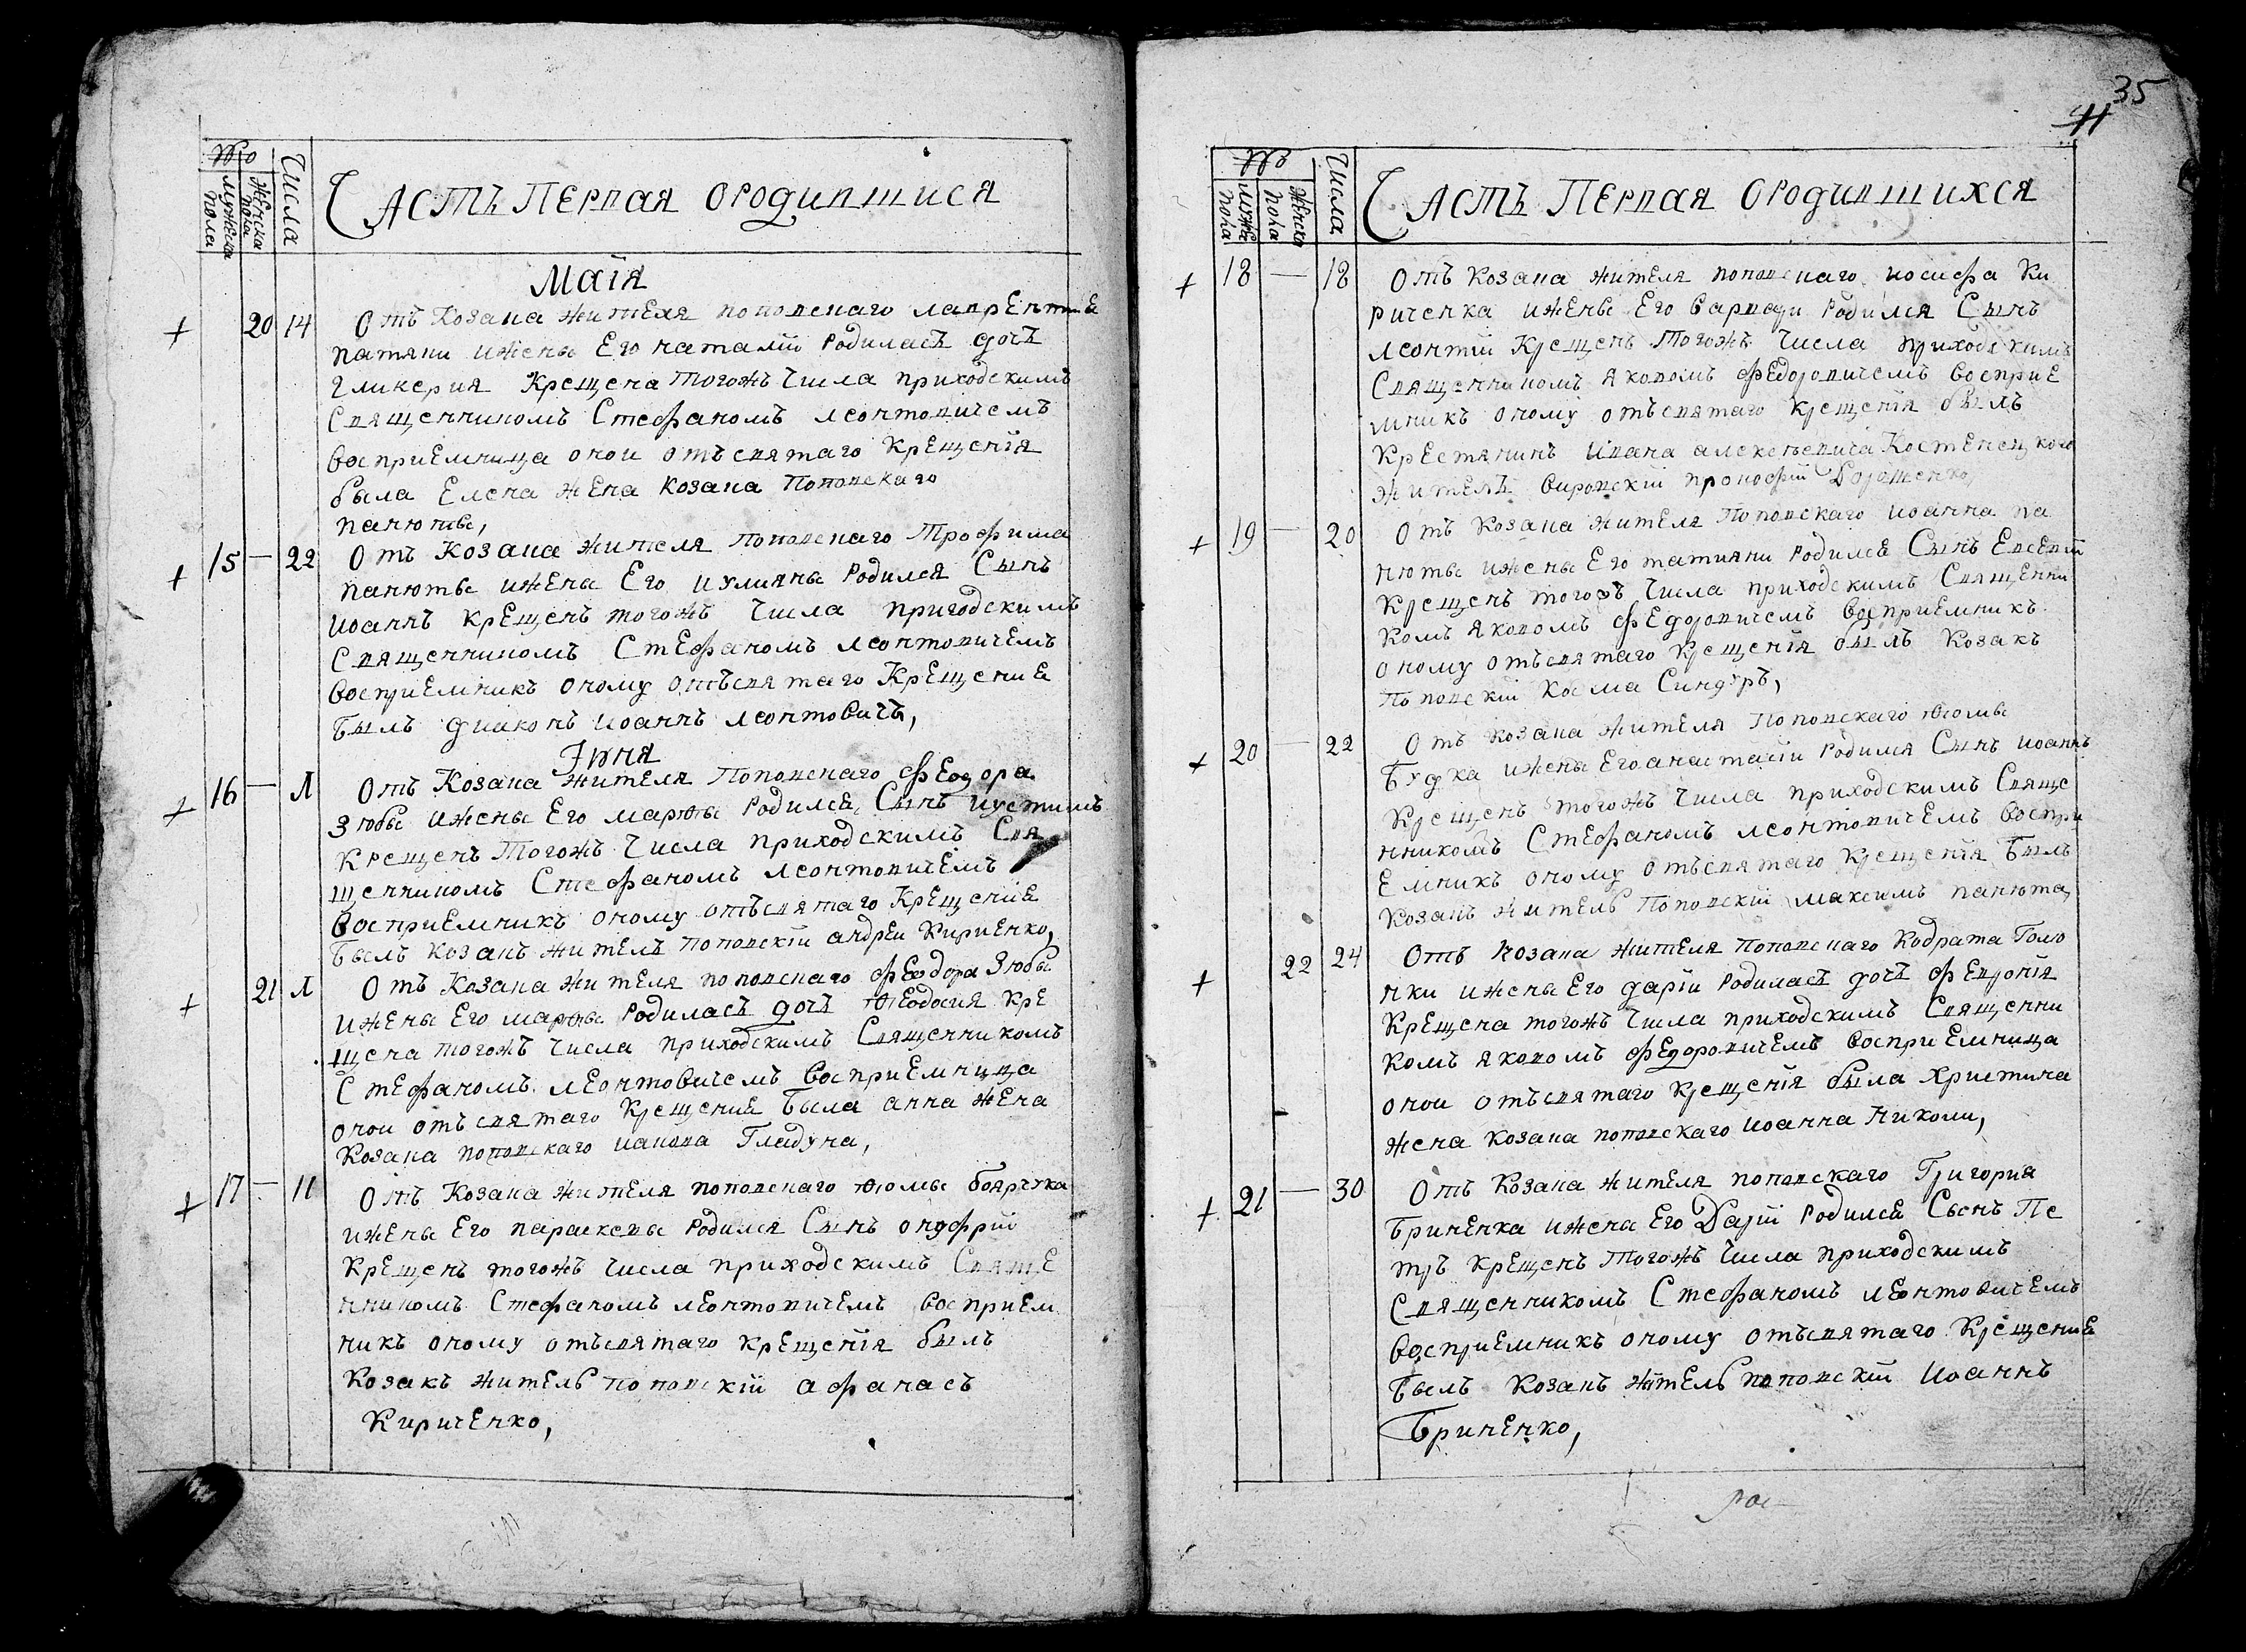 №о
Числа
Мужеска пола
Женска пола
Часть первая ородившися
Маія
20 14 Отъ козака жителя поповскаго лаврентия
ижены Его наталіи Родилась дочь
гликерия Крещена тогожъ Числа приходскимъ
Священникомъ Стефаномъ леонтовичемъ
восприемница онои отъсвятаго Крещенія
была Елена жена козака Поповскаго
панюты,
15 — 22 Отъ Козака жителя поповскаго Трофима
панюты ижены Его иулияны Родился Сынъ
иоаннъ крещенъ тогожъ Числа пригодскимъ
Священникомъ Стефаномъ леонтовичемъ
восприемникъ оному отъсвятаго Крещения
былъ диаконъ иоаннъ леонтовичъ,
Іюня
16 — Л Отъ Козака жителя Поповскаго феодора
Зюбы ижены Его марѳы Родился Сынъ иустинъ
Крещенъ Тогожъ Числа приходскимъ Свя
щенникомъ Стефаномъ леонтовичемъ
восприемникъ оному отъсвятаго Крещения
былъ козакъ жителъ поповскіи андреи Кириенко,
21 Л Отъ Козака жителя поповскаго феодора Зюбы
ижены Его марѳы Родиласъ дочъ ѳеодосия кре
щена тогожъ Числа приходскимъ Священникомъ
Стефаномъ леонтовичемъ восприемница
онои отъсвятаго Крещения была анна жена
Козака поповскаго иакова Гладуна,
17 — 11 Отъ Козака жителя поповскаго ѳомы
ижены Его параскевы Родился Сынъ онуфріи
Крещенъ тогожъ Числа приходскимъ Свяще
нникомъ Стефаномъ леонтовичемъ восприем
никъ оному отъсвятаго крещенія былъ
козакъ житель поповскіи афанасъ
Кириченко,
35
41
№о
Числа
Мужеска пола
Женска пола
Часть Первая Ородившихся
18 — 18 Отъ козака жителя поповскаго иосифа Ки
риченка ижены Его варвари Родился Сынъ
леонтіи Крещенъ Тогожъ Числа приходскимъ
Священникомъ яковомъ федоровичемъ восприе
мникъ оному отъсвятаго крещенія былъ
крестянинъ ивана алексеевича
жителъ прокофіи Дорошенко,
19 — 20 Отъ козака жителя Поповскаго иоанна па
нюты ижены Его татияни Родился Сынъ Евсевіи
крещенъ тогожъ Числа приходскимъ Священни
комъ яковомъ федоровичемъ восприемникъ
оному отъсвятаго крещенія былъ козакъ
поповскіи косма Синдуръ,
20 — 22 Отъ козака жителя Поповскаго ѳомы
Будка ижены Его анастасіи Родился Сынъ иоаннъ
Крещенъ тогожъ Числа приходскимъ Свяще
нникомъ Стефаномъ леонтовичемъ воспри
емникъ оному отъсвятаго крещенія былъ
козакъ житель Поповскіи максимъ панюта,
22 24 Отъ козака жителя поповскаго Кодрата Голо
нки ижены Его даріи Родиласъ дочъ февронія
Крещена тогожъ Числа приходскимъ Священни
комъ яковомъ федоровичемъ восприемница
онои отъсвятаго крещенія была христина
жена козака поповскаго иоанна николи,
21 — 30 Отъ козака жителя поповскаго Григория
Бриненка ижена Его Даріи Родился Сынъ Пе
тръ крещенъ Тогожъ Числа приходскимъ
Священникомъ Стефаномъ леонтовичемъ
восприемникъ оному отъсвятаго Крещения
былъ козакъ житель поповскіи иоаннъ
Бриненко,